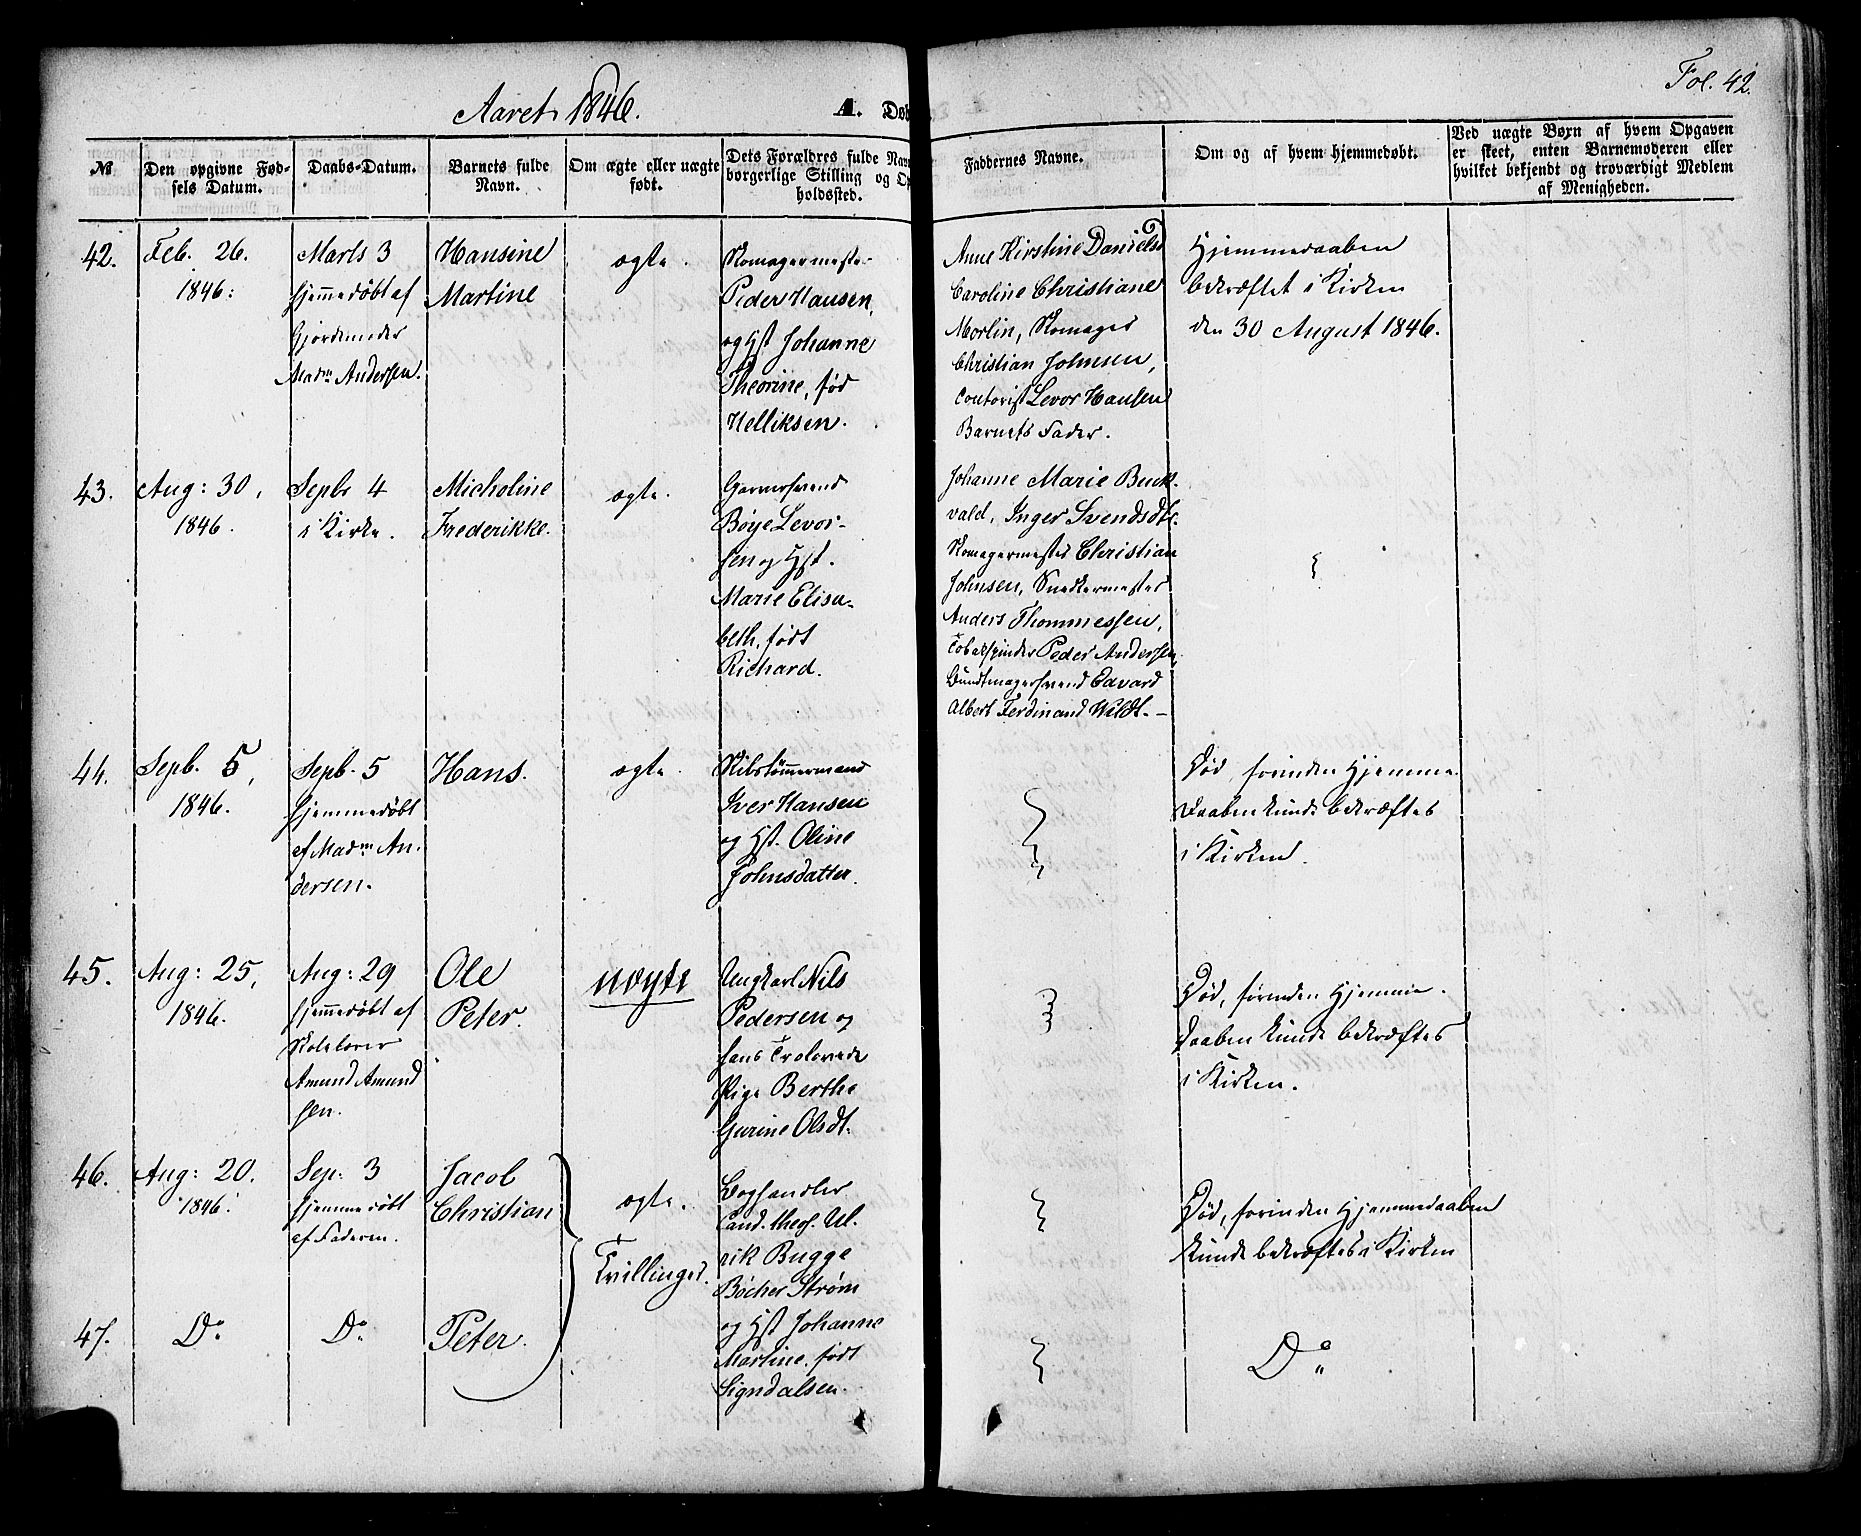 Fol. 42.
Aaret 1846.
A. Døb
№
Den opgivne Fød-
sels Datum.
Daabs-Datum.
Barnets fulde
Navn.
Om ægte eller uægte
født.
Dets Forældres fulde Nav
borgerlige Stilling og Op
holdssted.
Faddernes Navne.
Om og af hvem hjemmedøbt.
Ved uægte Børn af hvem Opgaven
er skeet, enten Barnemoderen eller
hvilket bekjendt og troværdigt Medlem
af Menigheden.
42.
Feb. 26.
1846.
Marts 3
hjemmedøbt af
Gjordemoder
Madm Andersen.
Hansine
Martine
ægte.
Skomagermester
Peder Hansen,
og Hst Johanne
Theorine, fød
Helliksen.
Anne Kirstine Danielsd
Caroline Christiane
Morlin, Skomager
Christian Johnsen,
Contorist Levor Hansen
Barnets Fader.
Hjemmedaaben
bekræftet i Kirken
den 30 August 1846.
43.
Aug: 30,
1846.
Septbr 4
i Kirke.
Micholine
Frederikke.
ægte.
Garversvend
Böye Levor-
sen og Hst.
Marie Elisa-
beth, født
Richard.
Johanne Marie Buck-
vald, Inger Svendsdtr.
Skomagermester Christian
Johnsen, Snedkermester
Anders Thommessen,
Tobakspinder Peder Andersen,
Bundtmagersvend Edvard
Albert Ferdinand Wildt.-
44.
Septb. 5,
1846.
Septb. 5
hjemmedøbt
af Madm An-
dersen.
Hans.
ægte.
Skibstömmermand
Iver Hansen
og Hst. Oline
Johnsdatter.
Död, forinden Hjemme-
daaben kunde bekræftes
i Kirken.
45.
Aug: 25,
1846.
Aug: 29
hjemmedøbt af
Skolelærer
Amund Amund
sen.
Ole
Peter.
uægte
Ungkarl Nils
Pedersen og
hans Trolovede
Pige Berthe
Gurine Olsdt.
Död, forinden Hjemme-
daaben kunde bekræftes
i Kirken.
46.
Aug: 20.
1846.
Sep: 3
hjemmedøbt
af Faderen.
Jacob
Christian
ægte.
Tvillinger.
Boghandler
Cand. theol. Ul-
rik Bugge
Böcher Strøm
og Hst Johanne
Martine, født
Signdalsen.
Död, forinden Hjemmedaaben
kunde bekræftes i Kirken
47.
Do
Do
Peter.
Do